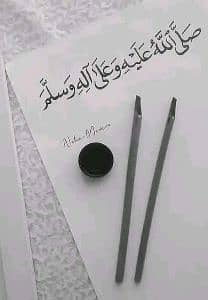 صَلَّى اللَّهُ عَلَيْهِ وَعَلَى آلِهِ وَسَلَّمَ